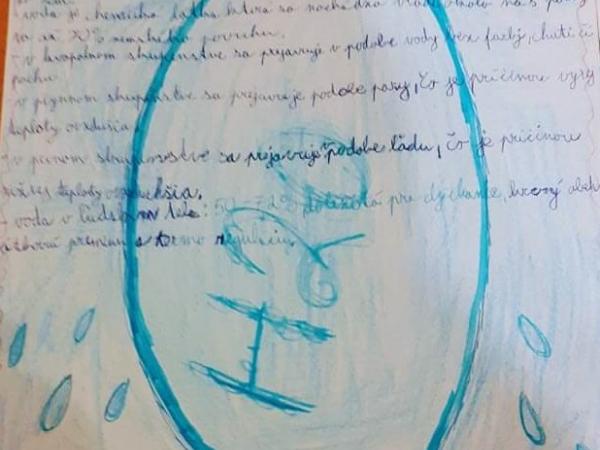 voda je chemická látka ktorá sa nachádza všade okolo nás
70% zemského povrchu.
v kvapalnom skupenstve sa prejavuje v podobe vody bez farby, chuti či
pachu
v plynnom skupenstve sa prejavuje podobe pary, čo je príčinou vyššej
teploty ovzdušia
v pevnom skupenstve sa prejavuje podobe ľadu, čo je príčinou
nižšej teploty ovzdušia.
- voda v ľudskom tele: 50-72% dôležitá pre dýchanie, krvný obeh
a termo reguláciu
H2O